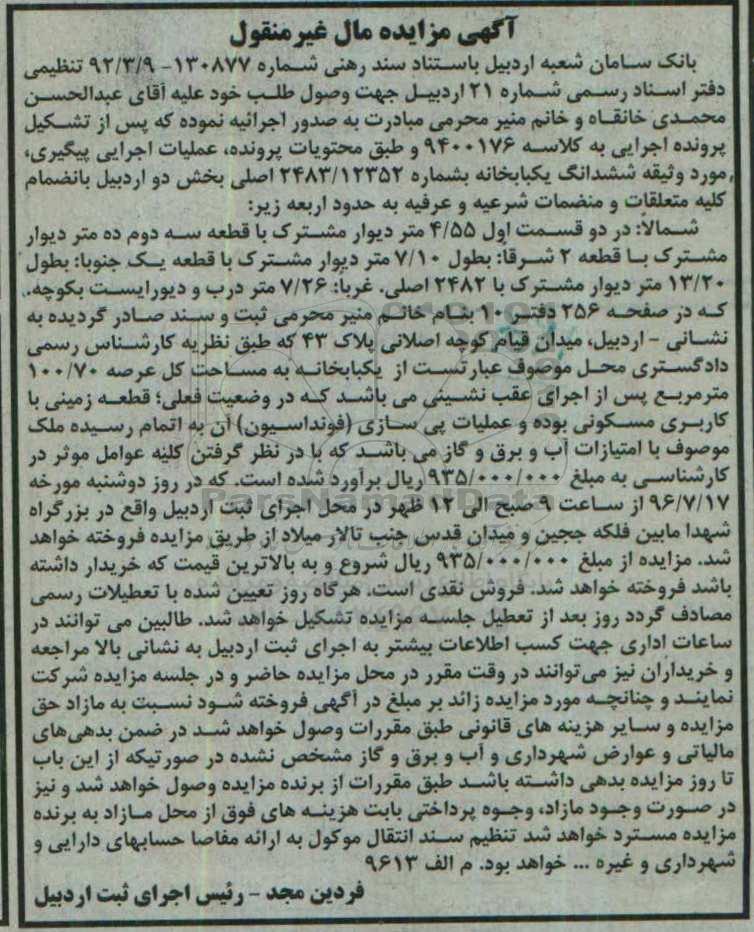 آگهی مزایده مال غیرمنقول
بانک سامان شعبه اردبیل باستناد سند رهنی شماره ۱۳۰۸۷۷- ۹۲/۳/۹ تنظیمی
دفتر اسناد رسمی شماره ۲۱ اردبیل جهت وصول طلب خود علیه آقای عبدالحسن
محمدی خانقاه و خانم منیر محرمی مبادرت به صدور اجرائیه نموده که پس از تشکیل
پرونده اجرایی به کلاسه ۹۴۰۰۱۷۶ و طبق محتویات پرونده، عملیات اجرایی پیگیری،
مورد وثیقه ششدانگ یکبابخانه بشماره ۲۴۸۳/۱۲۳۵۲ اصلی بخش دو اردبیل بانضمام
کلیه متعلقات و منضمات شرعیه و عرفیه به حدود اربعه زیر:
شمالا: در دو قسمت اول ۴/۵۵ متر دیوار مشترک با قطعه سه دوم ده متر دیوار
مشترک با قطعه ۲ شرقا: بطول ۷/۱۰ متر دیوار مشترک با قطعه یک جنوبا: بطول
۱۳/۲۰ متر دیوار مشترک با ۲۴۸۲ اصلی. غربا: ۷/۲۶ متر درب و دیورایست بکوچه.
که در صفحه ۲۵۶ دفتر ۱۰ بنام خانم منیر محرمی ثبت و سند صادر گردیده به
نشانی - اردبیل، میدان قیام کوچه اصلانی پلاک ۴۳ که طبق نظریه کارشناس رسمی
دادگستری محل موصوف عبارتست از یکبابخانه به مساحت کل عرصه ۱۰۰/۷۰
مترمربع پس از اجرای عقب نشینی می باشد که در وضعیت فعلی؛ قطعه زمینی با
کاربری مسکونی بوده و عملیات پی سازی (فونداسیون) آن به اتمام رسیده ملک
موصوف با امتیازات آب و برق و گاز می باشد که با در نظر گرفتن کلیه عوامل موثر در
کارشناسی به مبلغ ۹۳۵/۰۰۰/۰۰۰ ریال برآورد شده است. که در روز دوشنبه مورخه
۹۶/۷/۱۷ از ساعت ۹ صبح الی ۱۲ ظهر در محل اجرای ثبت اردبیل واقع در بزرگراه
شهدا مابین فلکه ججین و میدان قدس جنب تالار میلاد از طریق مزایده فروخته خواهد
شد. مزایده از مبلغ ۹۳۵/۰۰۰/۰۰۰ ریال شروع و به بالاترین قیمت که خریدار داشته
باشد فروخته خواهد شد. فروش نقدی است. هرگاه روز تعیین شده با تعطیلات رسمی
مصادف گردد روز بعد از تعطیل جلسه مزایده تشکیل خواهد شد. طالبین می توانند در
ساعات اداری جهت کسب اطلاعات بیشتر به اجرای ثبت اردبیل به نشانی بالا مراجعه
و خریداران نیز می‌توانند در وقت مقرر در محل مزایده حاضر و در جلسه مزایده شرکت
نمایند و چنانچه مورد مزایده زائد بر مبلغ در آگهی فروخته شود نسبت به مازاد حق
مزایده و سایر هزینه های قانونی طبق مقررات وصول خواهد شد در ضمن بدهی‌های
مالیاتی و عوارض شهرداری و آب و برق و گاز مشخص نشده در صورتیکه از این باب
تا روز مزایده بدهی داشته باشد طبق مقررات از برنده مزایده وصول خواهد شد و نیز
در صورت وجود مازاد، وجوه پرداختی بابت هزینه های فوق از محل مازاد به برنده
مزایده مسترد خواهد شد تنظیم سند انتقال موکول به ارائه مفاصا حسابهای دارایی و
شهرداری و غیره ... خواهد بود. م الف ۹۶۱۳
فردین مجد - رئیس اجرای ثبت اردبیل
ParsNamadData